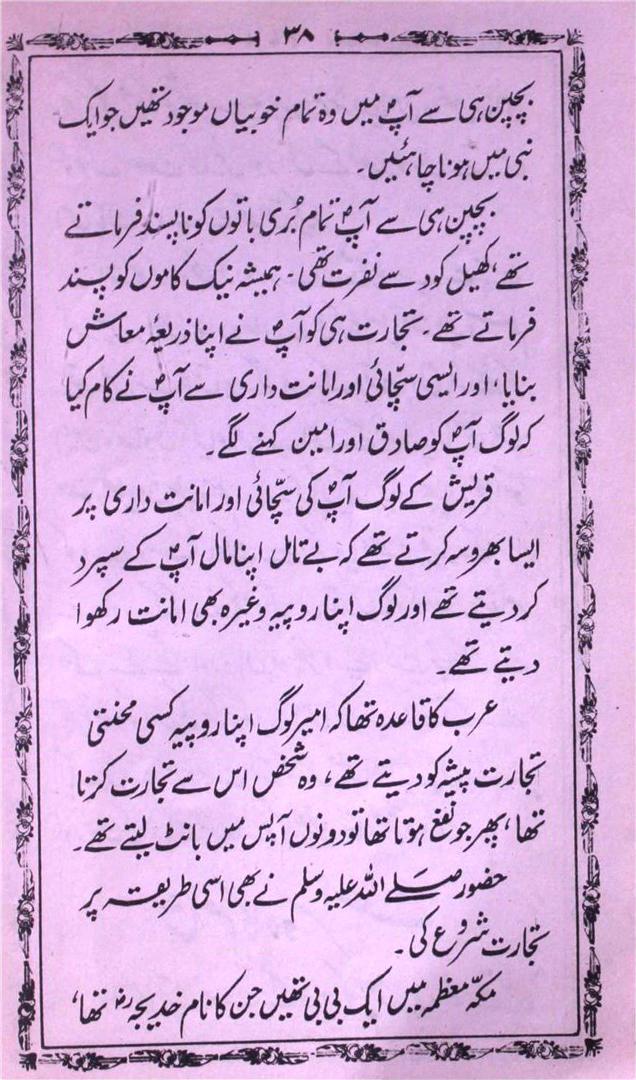 ۳۸
بچپن ہی سے آپؐ میں وہ تمام خوبیاں موجود تھیں جو ایک
نبی میں ہونا چاہئیں۔
بچپن ہی سے آپؐ تمام بُری باتوں کو ناپسند فرماتے
تھے، کھیل کود سے نفرت تھی۔ ہمیشہ نیک کاموں کو پسند
فرماتے تھے۔ تجارت ہی کو آپؐ نے اپنا ذریعۂ معاش
بنایا، اور ایسی سچّائی اور امانت داری سے آپؐ نے کام کیا
کہ لوگ آپؐ کو صادق اور امین کہنے لگے۔
قریش کے لوگ آپؐ کی سچّائی اور امانت داری پر
ایسا بھروسہ کرتے تھے کہ بے تامل اپنا مال آپؐ کے سپرد
کر دیتے تھے اور لوگ اپنا روپیہ وغیرہ بھی امانت رکھوا
دیتے تھے۔
عرب کا قاعدہ تھا کہ امیر لوگ اپنا روپیہ کسی محنتی
تجارت پیشہ کو دیتے تھے، وہ شخص اس سے تجارت کرتا
تھا، پھر جو نفع ہوتا تھا تو دونوں آپس میں بانٹ لیتے تھے۔
حضور صلے اللہ علیہ وسلم نے بھی اسی طریقہ پر
تجارت شروع کی۔
مکہّ معظمہ میں ایک بی بی تھیں جن کا نام خدیجہ رضؓ تھا،